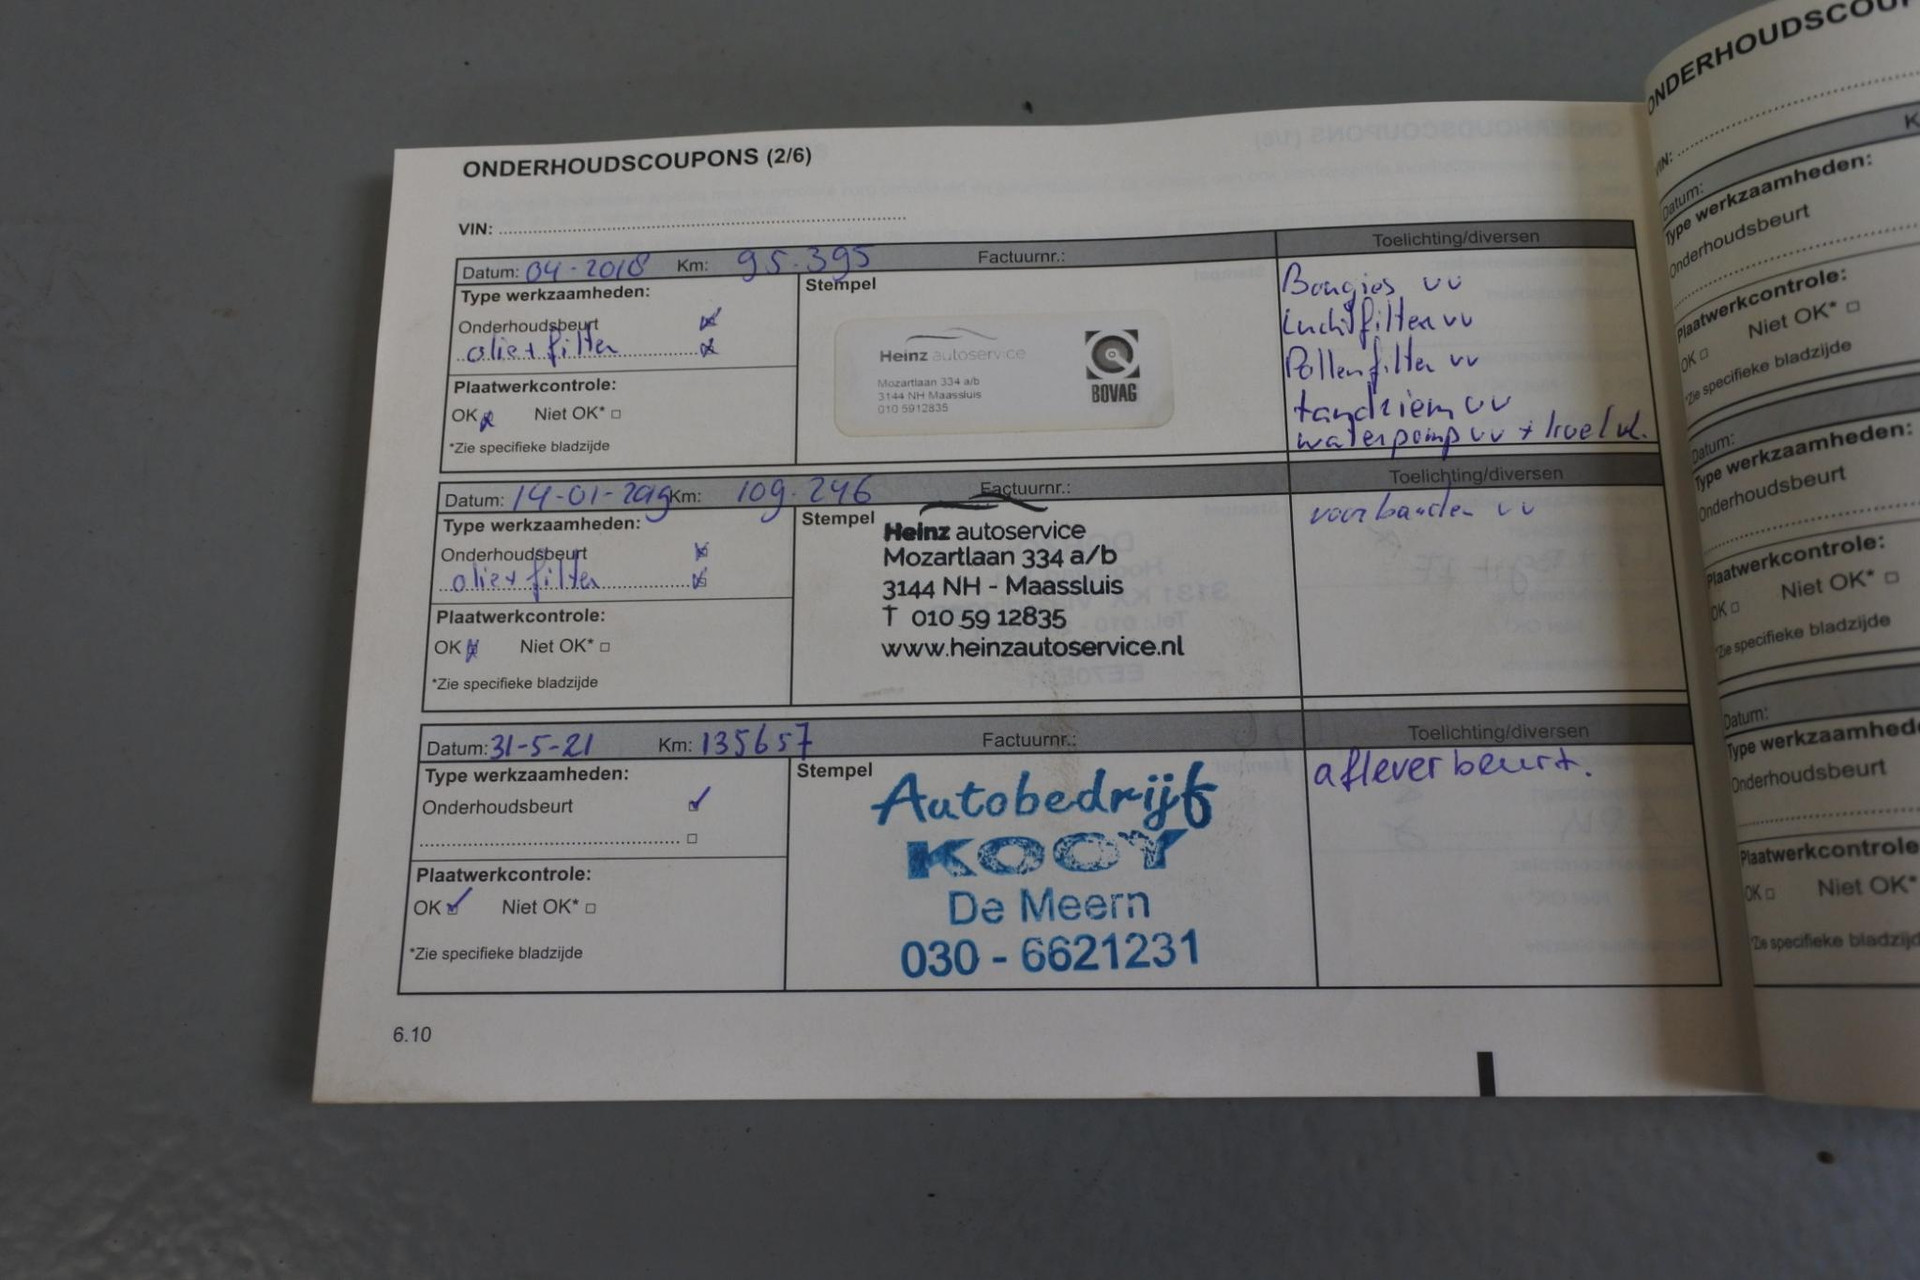 ONDERHOUDSCOUPONS (2/6)
VIN:
Datum: 04-2018 Km: 95.395 Factuurnr.: Toelichting/diversen
Type werkzaamheden:
Onderhoudsbeurt
olie + filter
Plaatwerkcontrole:
OK Niet OK*
*Zie specifieke bladzijde
Stempel
Heinz autoservice
Mozartlaan 334 a/b
3144 NH Maassluis
010 5912835
BOVAG
Bougies vv
Luchtfilter vv
Pollenfilter vv
tandriem vv
waterpomp vv + koelvl.
Datum: 14-01-2019 Km: 109.246 Factuurnr.: Toelichting/diversen
Type werkzaamheden:
Onderhoudsbeurt
olie + filter
Plaatwerkcontrole:
OK Niet OK*
*Zie specifieke bladzijde
Stempel
Heinz autoservice
Mozartlaan 334 a/b
3144 NH - Maassluis
T 010 59 12835
www.heinzautoservice.nl
voorbanden vv
Datum: 31-5-21 Km: 135657 Factuurnr.: Toelichting/diversen
Type werkzaamheden:
Onderhoudsbeurt
Plaatwerkcontrole:
OK Niet OK*
*Zie specifieke bladzijde
Stempel
Autobedrijf
KOOY
De Meern
030 - 6621231
afleverbeurt.
6.10
VIN:
Datum:
Type werkzaamheden:
Onderhoudsbeurt
Plaatwerkcontrole:
OK Niet OK*
*Zie specifieke bladzijde
Datum:
Type werkzaamheden:
Onderhoudsbeurt
Plaatwerkcontrole:
OK Niet OK*
*Zie specifieke bladzijde
Datum:
Type
Onderhoudsbeurt
Plaatwerkcontrole
OK Niet OK*
*Zie specifieke